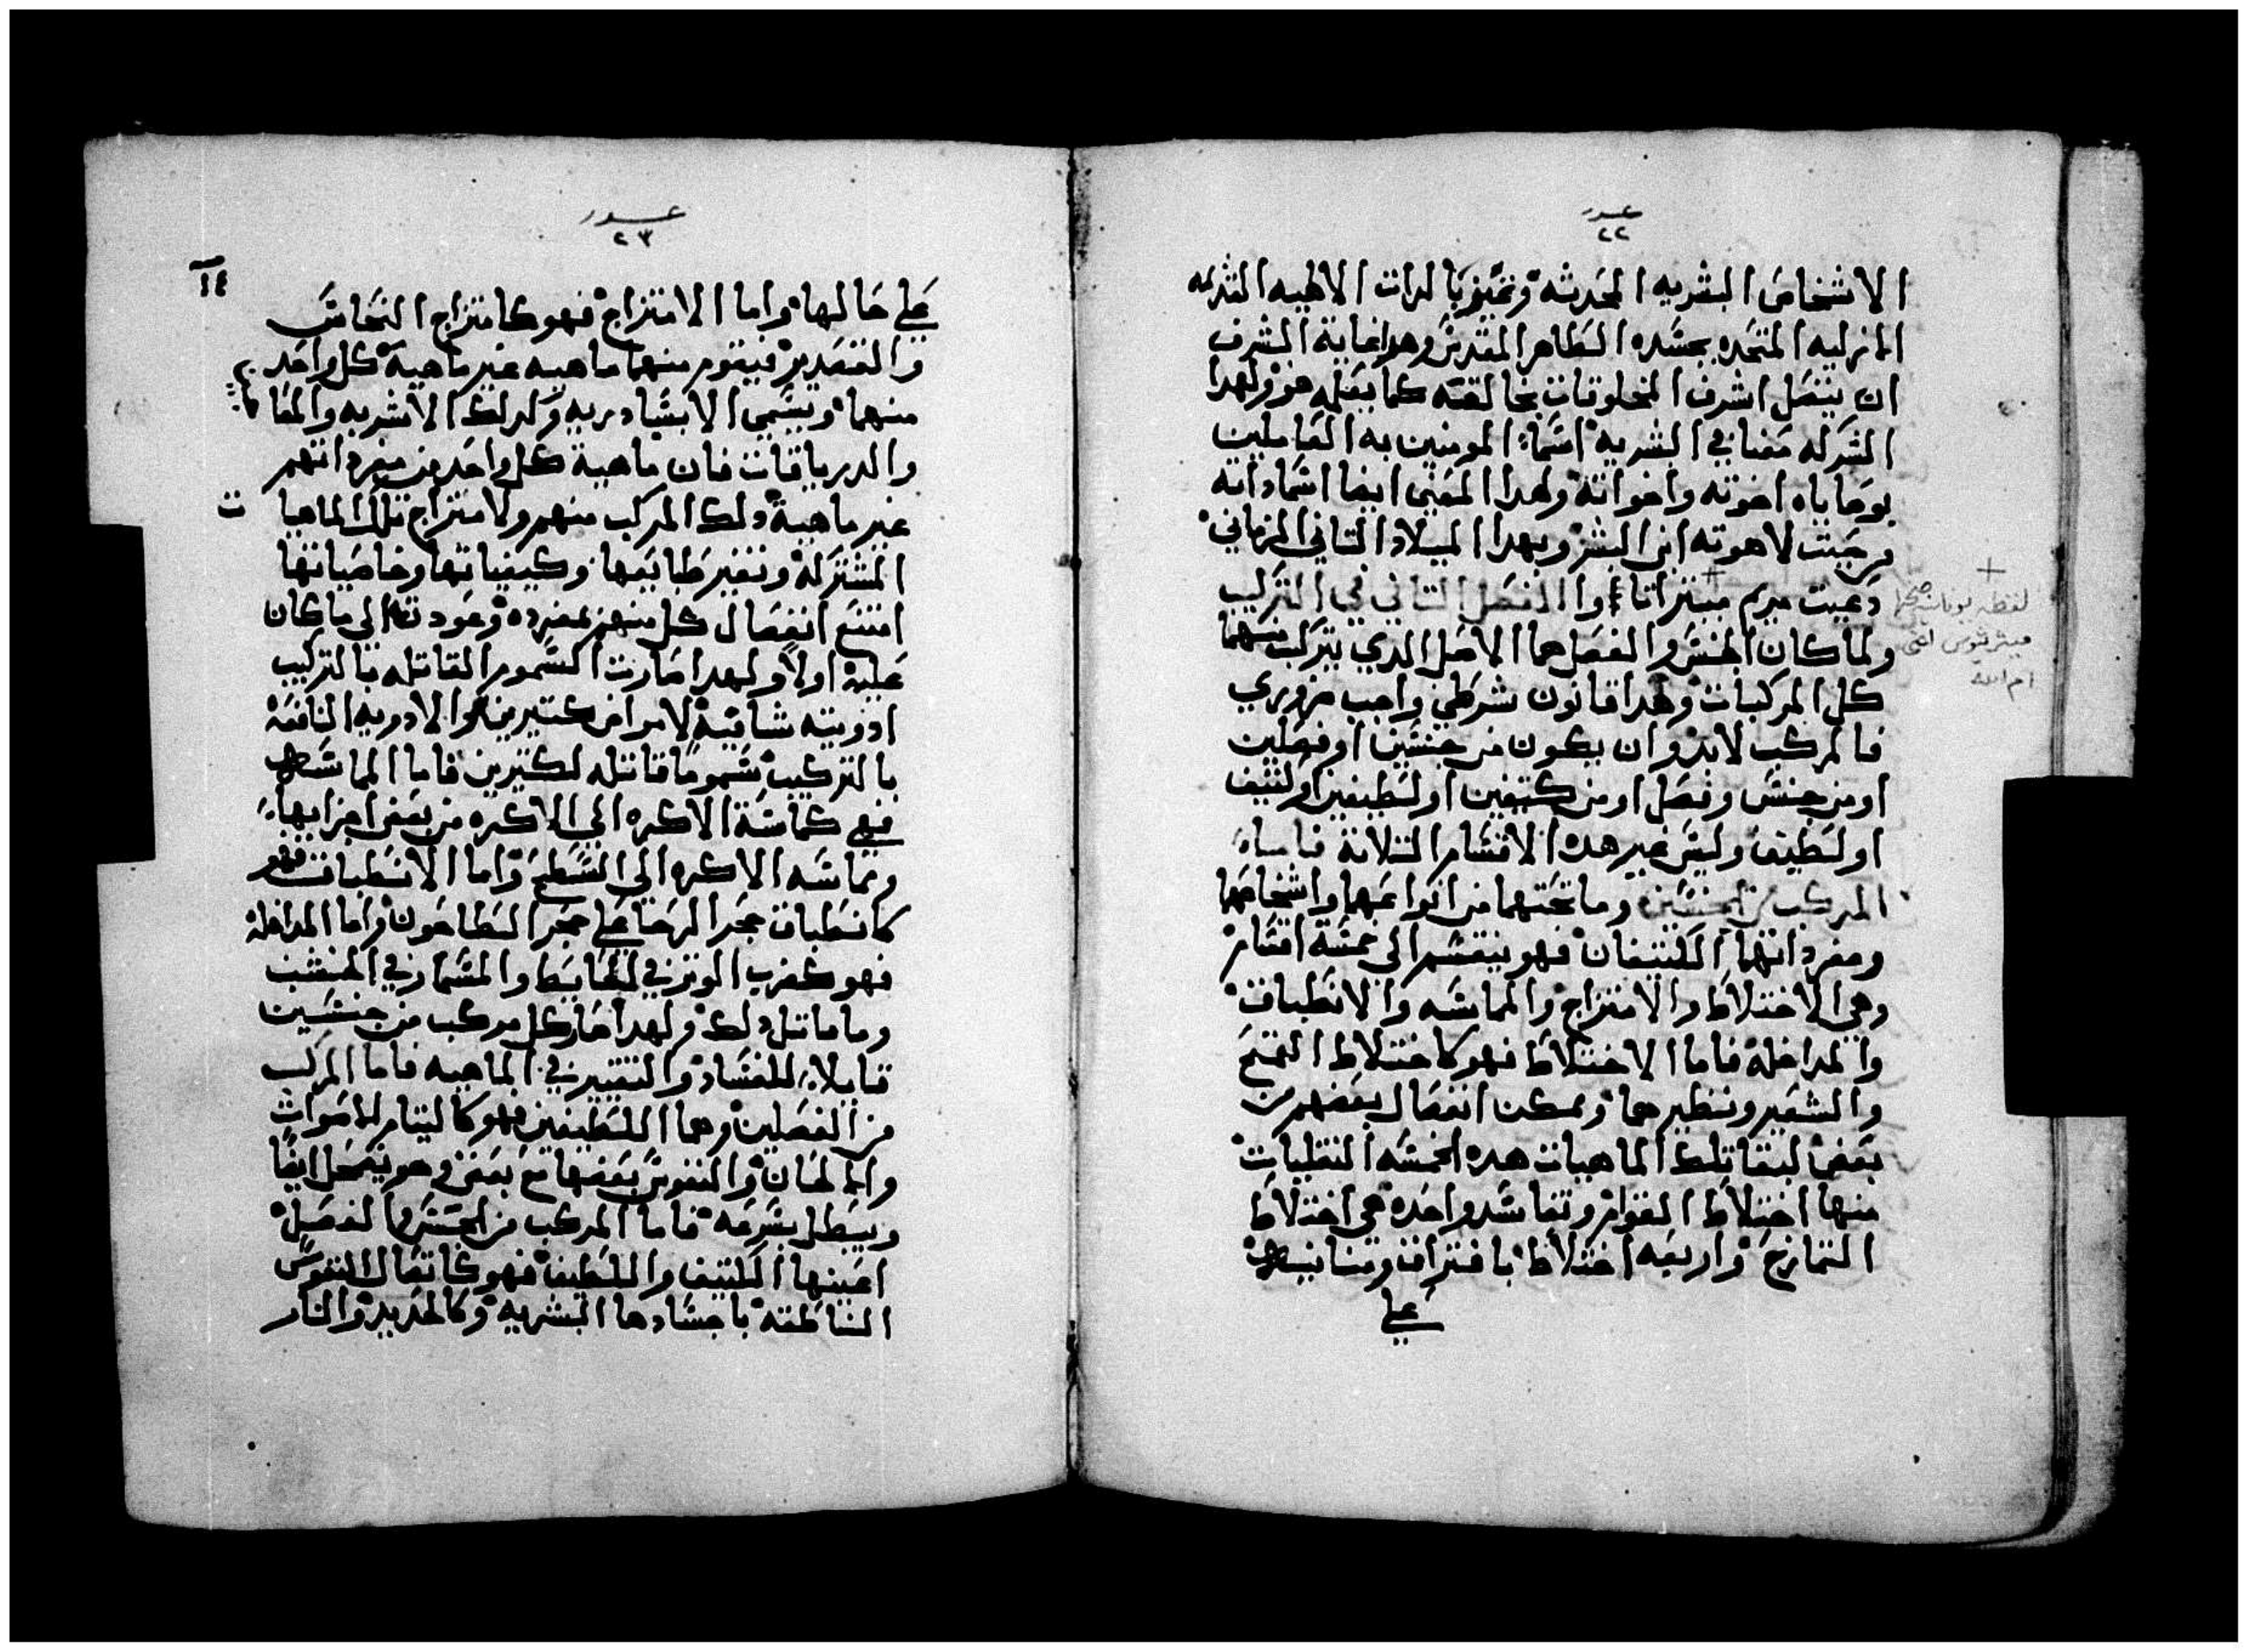 عدد
٢٢
الاشخاص البشريه المحدثه وتميز بالدات الالهيه القديمه
الازليه المتحده بجسده الطاهر المقدس وهدا غاية الشرف
ان يتصل اشرف المخلوقات بخالقه كما يعلم هو ولهدا
الشركه معنا في البشريه اسما المومنين به العاملين
بوصاياه اخوته واخواته ولهدا المعني ايضا اسما داته
من حيت لاهوته ابن البشر وبهدا الميلاد التاني الزماني
دعيت مريم ميتراتا وا الفصل التاني في التركيب
ولما كان الجنس والفصل هما الاصل الدي يتركب منهما
كل المركبات ولهدا قانون شرطي واجب ضروري
فالمركب لابد وان يكون من جنسين او فصلين
او من جنس وفصل او من كتيفين او لطيفين او كتيف
او لطيف وليس غير هده الاقسام التلاتة فاما
المركب من الجنسين وما تحتهما من انواعهما واشخاصهما
ومفرداتهما الكتيفان فهو ينقسم الي خمسة اقسام
وهي الاختلاط والامتزاج والمماسه والانطباق
والمداخله فاما الاختلاط فهو كاختلاط القمح
والشعير ونظيرهما ويمكن انفصال بعضهم من
بعض لبقا تلك الماهيات هده الخمسه
منها اختلاط القوام واحده هي اختلاط
التمازج واربعه اختلاط بافتراق
علي
+
لفظه يونانيه صحتها
ام الله
عدد
٢٣
١٤
علي حالها واما الامتزاج فهو كامتزاج النحاس
والقصدير فيقوم منهما ماهيه غير ماهية كل واحد
منهما ويسمي الاسبادريه وكدلك الاشربه والمعا
والدرياقات فان ماهية كل واحد من مفرداتهم
غير ماهية دلك المركب منهم ولامتزاج تلك الماهيا ت
المشتركه وتغير طبايعها وكيفياتها وخاصياتها
امتنع انفصال كل منهم بمفرده وعودته الي ماكان
عليه اولا ولهدا صارت السموم القاتله بالتركيب
ادويته شافية لامراض كتيرين والادويه النافعة
بالتركيب سموما قاتله لكتيرين فاما المماسه
فهي كماسة الاكره الي الاكره من بعض اجزايها
ومماسه الاكره الي السطح واما الانطباق فهو
كانطباق حجر الرحا علي حجر الطاحون واما المداخله
فهو كضرب الوتر في الحايط والمسمار في الخشب
وما ماتل دلك ولهدا صار كل مركب من جنسين
قابلا للفساد والتغيير في الماهيه فاما المركب
من الفصلين وهما اللطيفين فهو كالتيام الاصوات
والالحان والنفوس بعضها مع بعض وهو يضمحل ايضا
ويبطل بسرعه فاما المركب من الجنس والفصل
اعينها الكتيف واللطيف فهو كاتصال النفوس
الناطقه باجسادها البشريه وكالحديد والنار